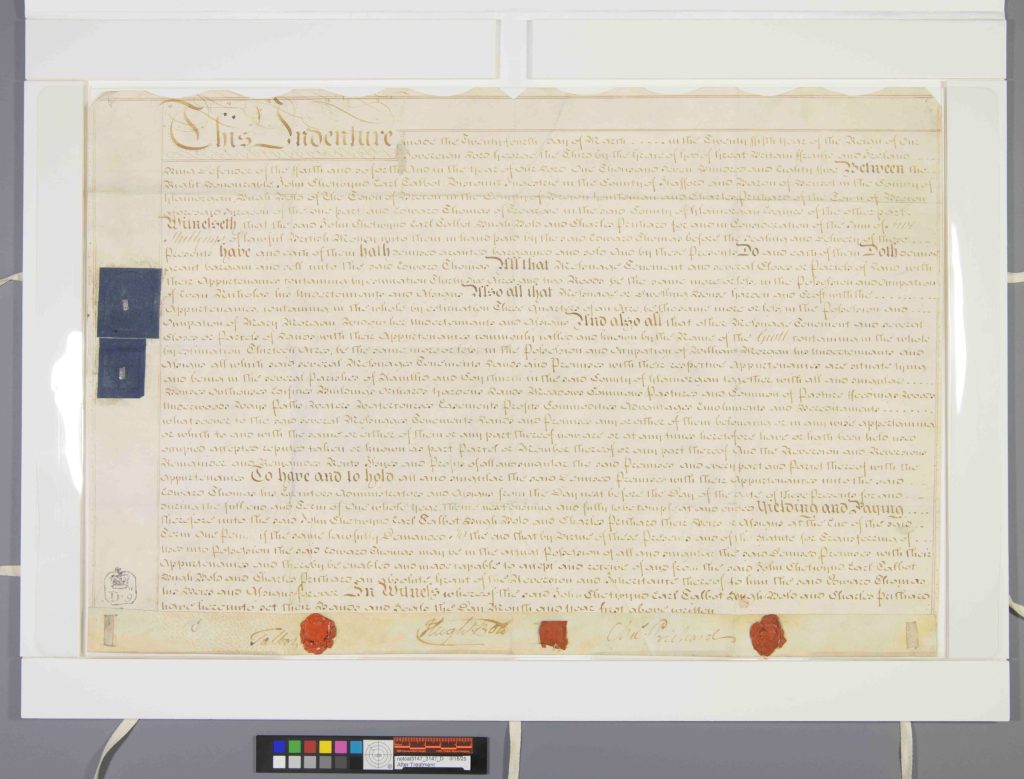 This Indenture made the Twenty fourth Day of March ...... in the Twenty fifth Year of the Reign of Our
Sovereign Lord George the Third by the Grace of God of Great Britain France and Ireland
King Defender of the Faith and so forth And in the Year of our Lord One Thousand Seven Hundred and Eighty five Between the
Right Honourable John Chetwynd Earl Talbot Viscount Ingestrie in the County of Stafford and Baron of Hensol in the County of
Glamorgan Hugh Bold of the Town of Brecon in the County of Brecon and Charles Prichard of the Town of Brecon
of the one part and Edward Thomas of in the said County of Glamorgan Esquire of the other part
Witnesseth that the said John Chetwynd Earl Talbot Hugh Bold and Charles Prichard for and in Consideration of the Sum of five
Shillings of lawful British Money unto them in hand paid by the said Edward Thomas before the Sealing and Delivery of these
Presents have and each of them hath demised granted bargained and sold And by these Presents Do and each of them Doth demise
grant bargain and sell unto the said Edward Thomas All that Messuage Tenement and several Closes or Parcels of Land with
their Appurtenances containing by estimation Thirty Six Acres and two Roods be the same more or less in the Possession and Occupation
of Evan Nicholas his Undertenants and Assigns Also all that Messuage or Dwelling House Garden and Croft with the
Appurtenances containing in the whole by estimation Three Quarters of an Acre be the same more or less in the Possession and
Occupation of Mary Morgan Widow her Undertenants and Assigns And also all that other Messuage Tenement and several
Closes or Parcels of Lands with their Appurtenances commonly called and known by the Name of the containing in the whole
by estimation Thirteen Acres be the same more or less in the Possession and Occupation of William Morgan his Undertenants and
Assigns all which said several Messuages Tenements Lands and Premises with their respective Appurtenances are situate lying
and being in the several Parishes of Llanilid and Coychurch in the said County of Glamorgan together with all and singular
Houses Outhouses Edifices Buildings Orchards Gardens Lands Meadows Commons Pastures and Common of Pasture Feedings Woods
Underwoods Ways Paths Waters Watercourses Easements Profits Commodities Advantages Emoluments and Hereditaments
whatsoever to the said several Messuages Tenements Lands and Premises any or either of them belonging or in any wise appertaining
or which to and with the same or either of them or any part thereof now are or at any times heretofore have or hath been held used
occupied accepted reputed taken or known as part Parcel or Member thereof or any part thereof And the Reversion and Reversions
Remainder and Remainders Rents Issues and Profits of all and singular the said Premises and every part and Parcel thereof with the
Appurtenances To have and to hold all and singular the said Demised Premises with their Appurtenances unto the said
Edward Thomas his Executors Administrators and Assigns from the Day next before the Day of the Date of these Presents for and
during the full end and Term of One whole Year thence next ensuing and fully to be compleat and ended Yielding and Paying
therefore unto the said John Chetwynd Earl Talbot Hugh Bold and Charles Prichard their Heirs or Assigns at the End of the said
Term One Penny if the same lawfully Demanded To the end that by Virtue of these Presents and of the Statute for Transferring of
Uses into Possession the said Edward Thomas may be in the actual Possession of all and singular the said Demised Premises with their
Appurtenances and thereby be enabled and made capable to accept and receive of and from the said John Chetwynd Earl Talbot
Hugh Bold and Charles Prichard An absolute Grant of the Reversion and Inheritance thereof to him the said Edward Thomas
his Heirs and Assigns forever In Witness whereof the said John Chetwynd Earl Talbot Hugh Bold and Charles Prichard
have hereunto set their Hands and Seals the Day Month and Year first above written
Talbot
Hugh Bold
Chas Prichard
After Treatment